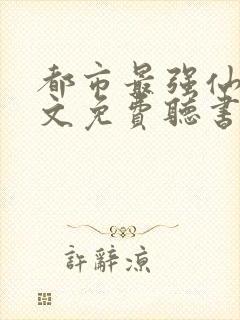 都市最强仙
文免費聽書
許辭涼